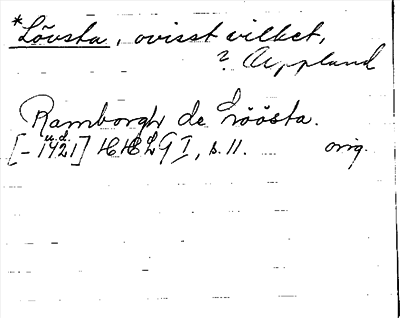 *Lövsta, ovisst vilket,
? Uppland
Ramborgh de Löösta.
u.d.
[-1421] HHLG I, s. 11. orig.